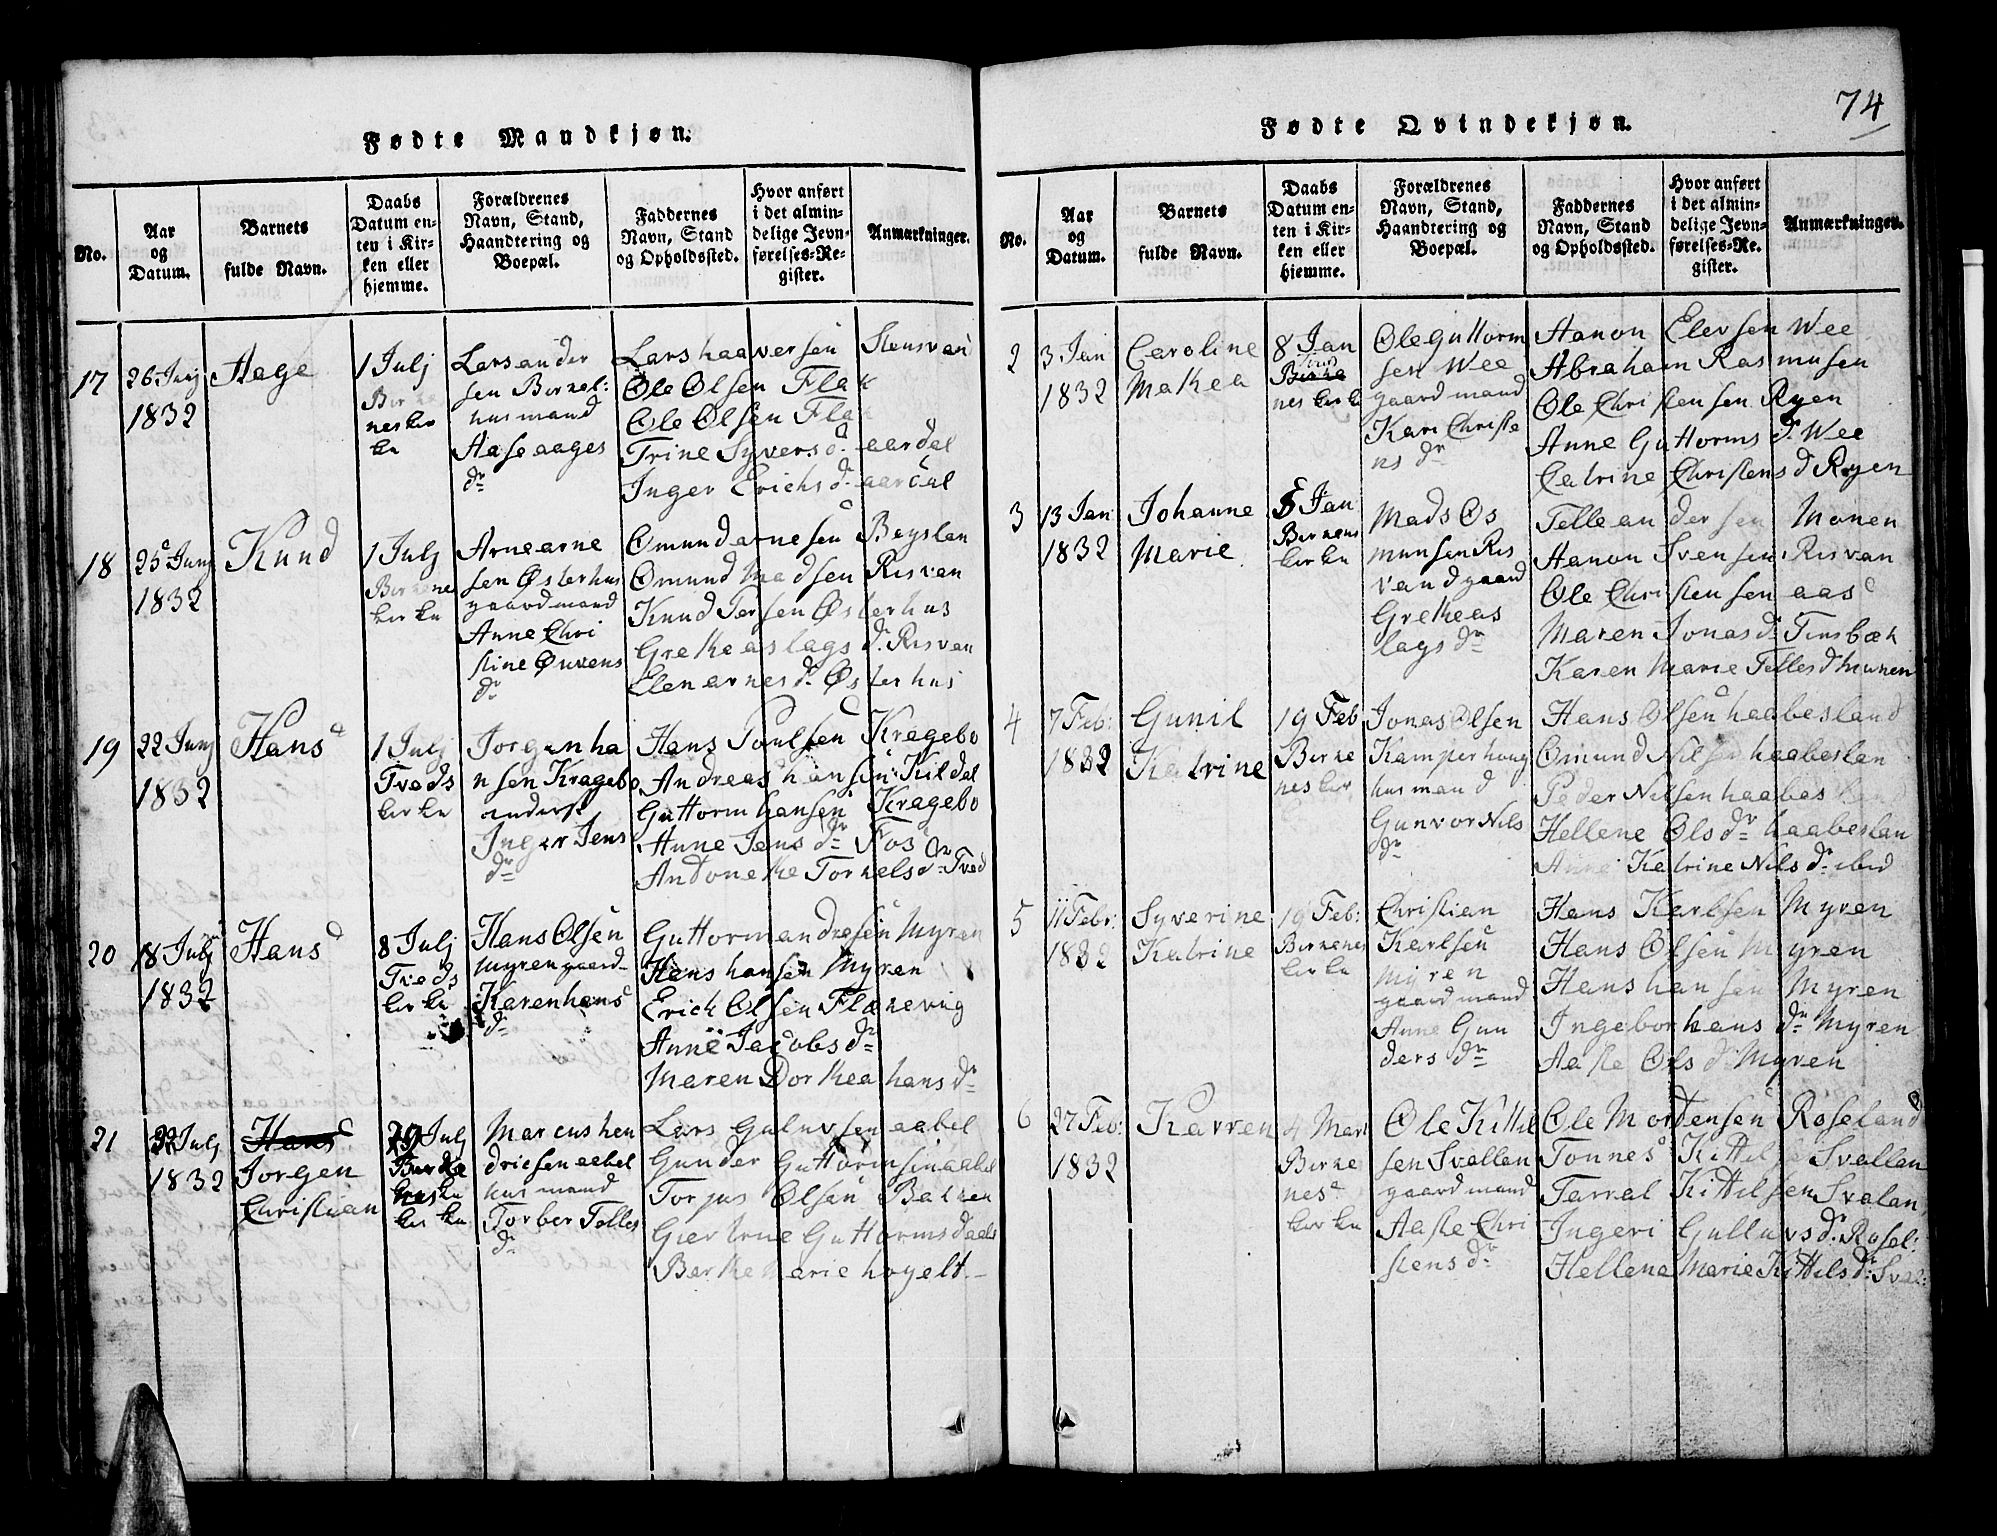 74
Fødte Mandkjøn.
No.
Aar
og
Datum.
Barnets
fulde Navn.
Daabs
Datum en-
ten i Kir-
ken eller
hjemme.
Forældrenes
Navn, Stand,
Haandtering og
Boepæl.
Faddernes
Navn, Stand
og Opholdssted.
Hvor anført
i det almin-
delige Jevn-
førelses-Re-
gister.
Anmærkninger.
17
26 Junj
1832
Aage
1 Julj
Birke
nes kir
ke
Lars ander
sen Birkel:
husmand
Aase aages
dr
Lars haaversen Stensvand
Ole Olsen Flak
Ole Olsen Flak
Trine Syvers d. aardal
Inger Erichs d. aardal
18
25 Junj
1832
Knud
1 Julj
Birkene
kirke
Arne arne
sen Østerhus
gaardmand
Anne Chri
stine Onvens
dr
Omund arnesen Bøyslan
Omund Madsen Risvan
Knud Tersen Østerhus
Grethe aslags d. Risvan
Elen arnes d. Østerhus
19
22 Junj
1832
Hans
1 Julj
Tveds
kirke
Jørgen ha
nsen Kragebo
inderst
Inger Jens
dr
Hans Poulsen Kragebo
Andreas hansen Kildal
Guttorm hansen Kragebo
Anne Jens dr Fos
Andonethe Torkels dr Tved
20
18 Julj
1832
Hans
8 Julj
Tveds
kirke
Hans Olsen
Myren gaard-
Karen hans
dr
Guttorm andresen Myren
Hans hansen Myren
Erich Olsen Flakevig
Anne Jacobs dr
Maren Dorthea hans dr
21
22 Julj
1832
Hans
Jørgen
Christian
29 Julj
Birke
nes
kirke
Marcus hen
driksen aabel
husmand
Torber Telles
dr
Lars Gulufsen aabel
Gunder Guttormsen aabel
Torjus Olsen Bakken
Giertrue Guttorms d aabl
Berthe Marie høgelt
Fødte Qvindekjøn.
No.
Aar
og
Datum.
Barnets
fulde Navn.
Daabs
Datum en-
ten i Kir-
ken eller
hjemme.
Forældrenes
Navn, Stand,
Haandtering og
Boepæl.
Faddernes
Navn, Stand
og Opholdssted.
Hvor anført
i det almin-
delige Jevn-
førelses-Re-
gister.
Anmærkninger.
2
3 Jan
1832
Caroline
Mathea
8 Jan
Birke
nes kirke
Ole Guttorm
sen Wee
gaardmand
Kari Christe
ns dr
Hanon Elevsen Wee
Abraham Rasmusen
Ole Christensen Ryen
Anne Guttorms d. Wee
Catrine Christens d Ryen
3
13 Jan
1832
Johanne
Marie
5 Jan
Birkenes
kirke
Mads Os
munsen Ris
vand gaard
Grethe as
lags dr
Telle andersen Monen
Hanon Svensen Risvan
Ole Christensen aas
Maren Jonas d. Tinsbæk
Karen Marie Telles d Monen
4
7 Feb:
1832
Gunil
Katrine
19 Feb
Birke
nes kir
Jonas Olsen
Kamperhoug
husmand
Gunvor Nils
dr
Hans Olsen haabesland
Omund Nilsen haabeslan
Peder Nilsen haabesland
Hellene Ols dr haabeslan
Anne Katrine Nils dr ibid
5
11 Febr:
1832
Syverine
Katrine
19 Feb:
Birkenes
kirke
Christian
Karlsen
Myren
gaardmand
Anne Gun
ders dr
Hans Karlsen Myren
Hans Olsen Myren
Hans hansen Myren
Ingebor hans dr Myren
Aaste Ols d. Myren
6
27 Feb:
1832
Karren
4 Mart
Birke
nes
kirke
Ole Kittil
sen Svallan
gaardmand
Aaste Chri
stens dr
Ole Mortensen Roseland
Tonnes Kittilsen Svallan
Tarral Kittilsen Svalan
Ingeri Gulluvs dr Rosel:
Hellena Marie Kittils dr Sval: